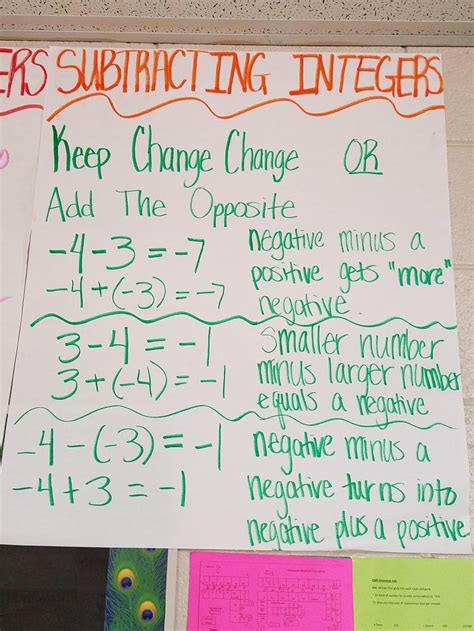 ERS SUBTRACTING INTEGERS
Keep Change Change OR
Add The Opposite
-4-3=-7
-4+(-3)=-7
negative minus a
positive gets "more"
negative.
3-4=-1
3+(-4)=-1
smaller number
minus larger number
equals a negative
-4-(-3)=-1
-4+3=-1
negative minus a
negative turns into
negative plus a positive